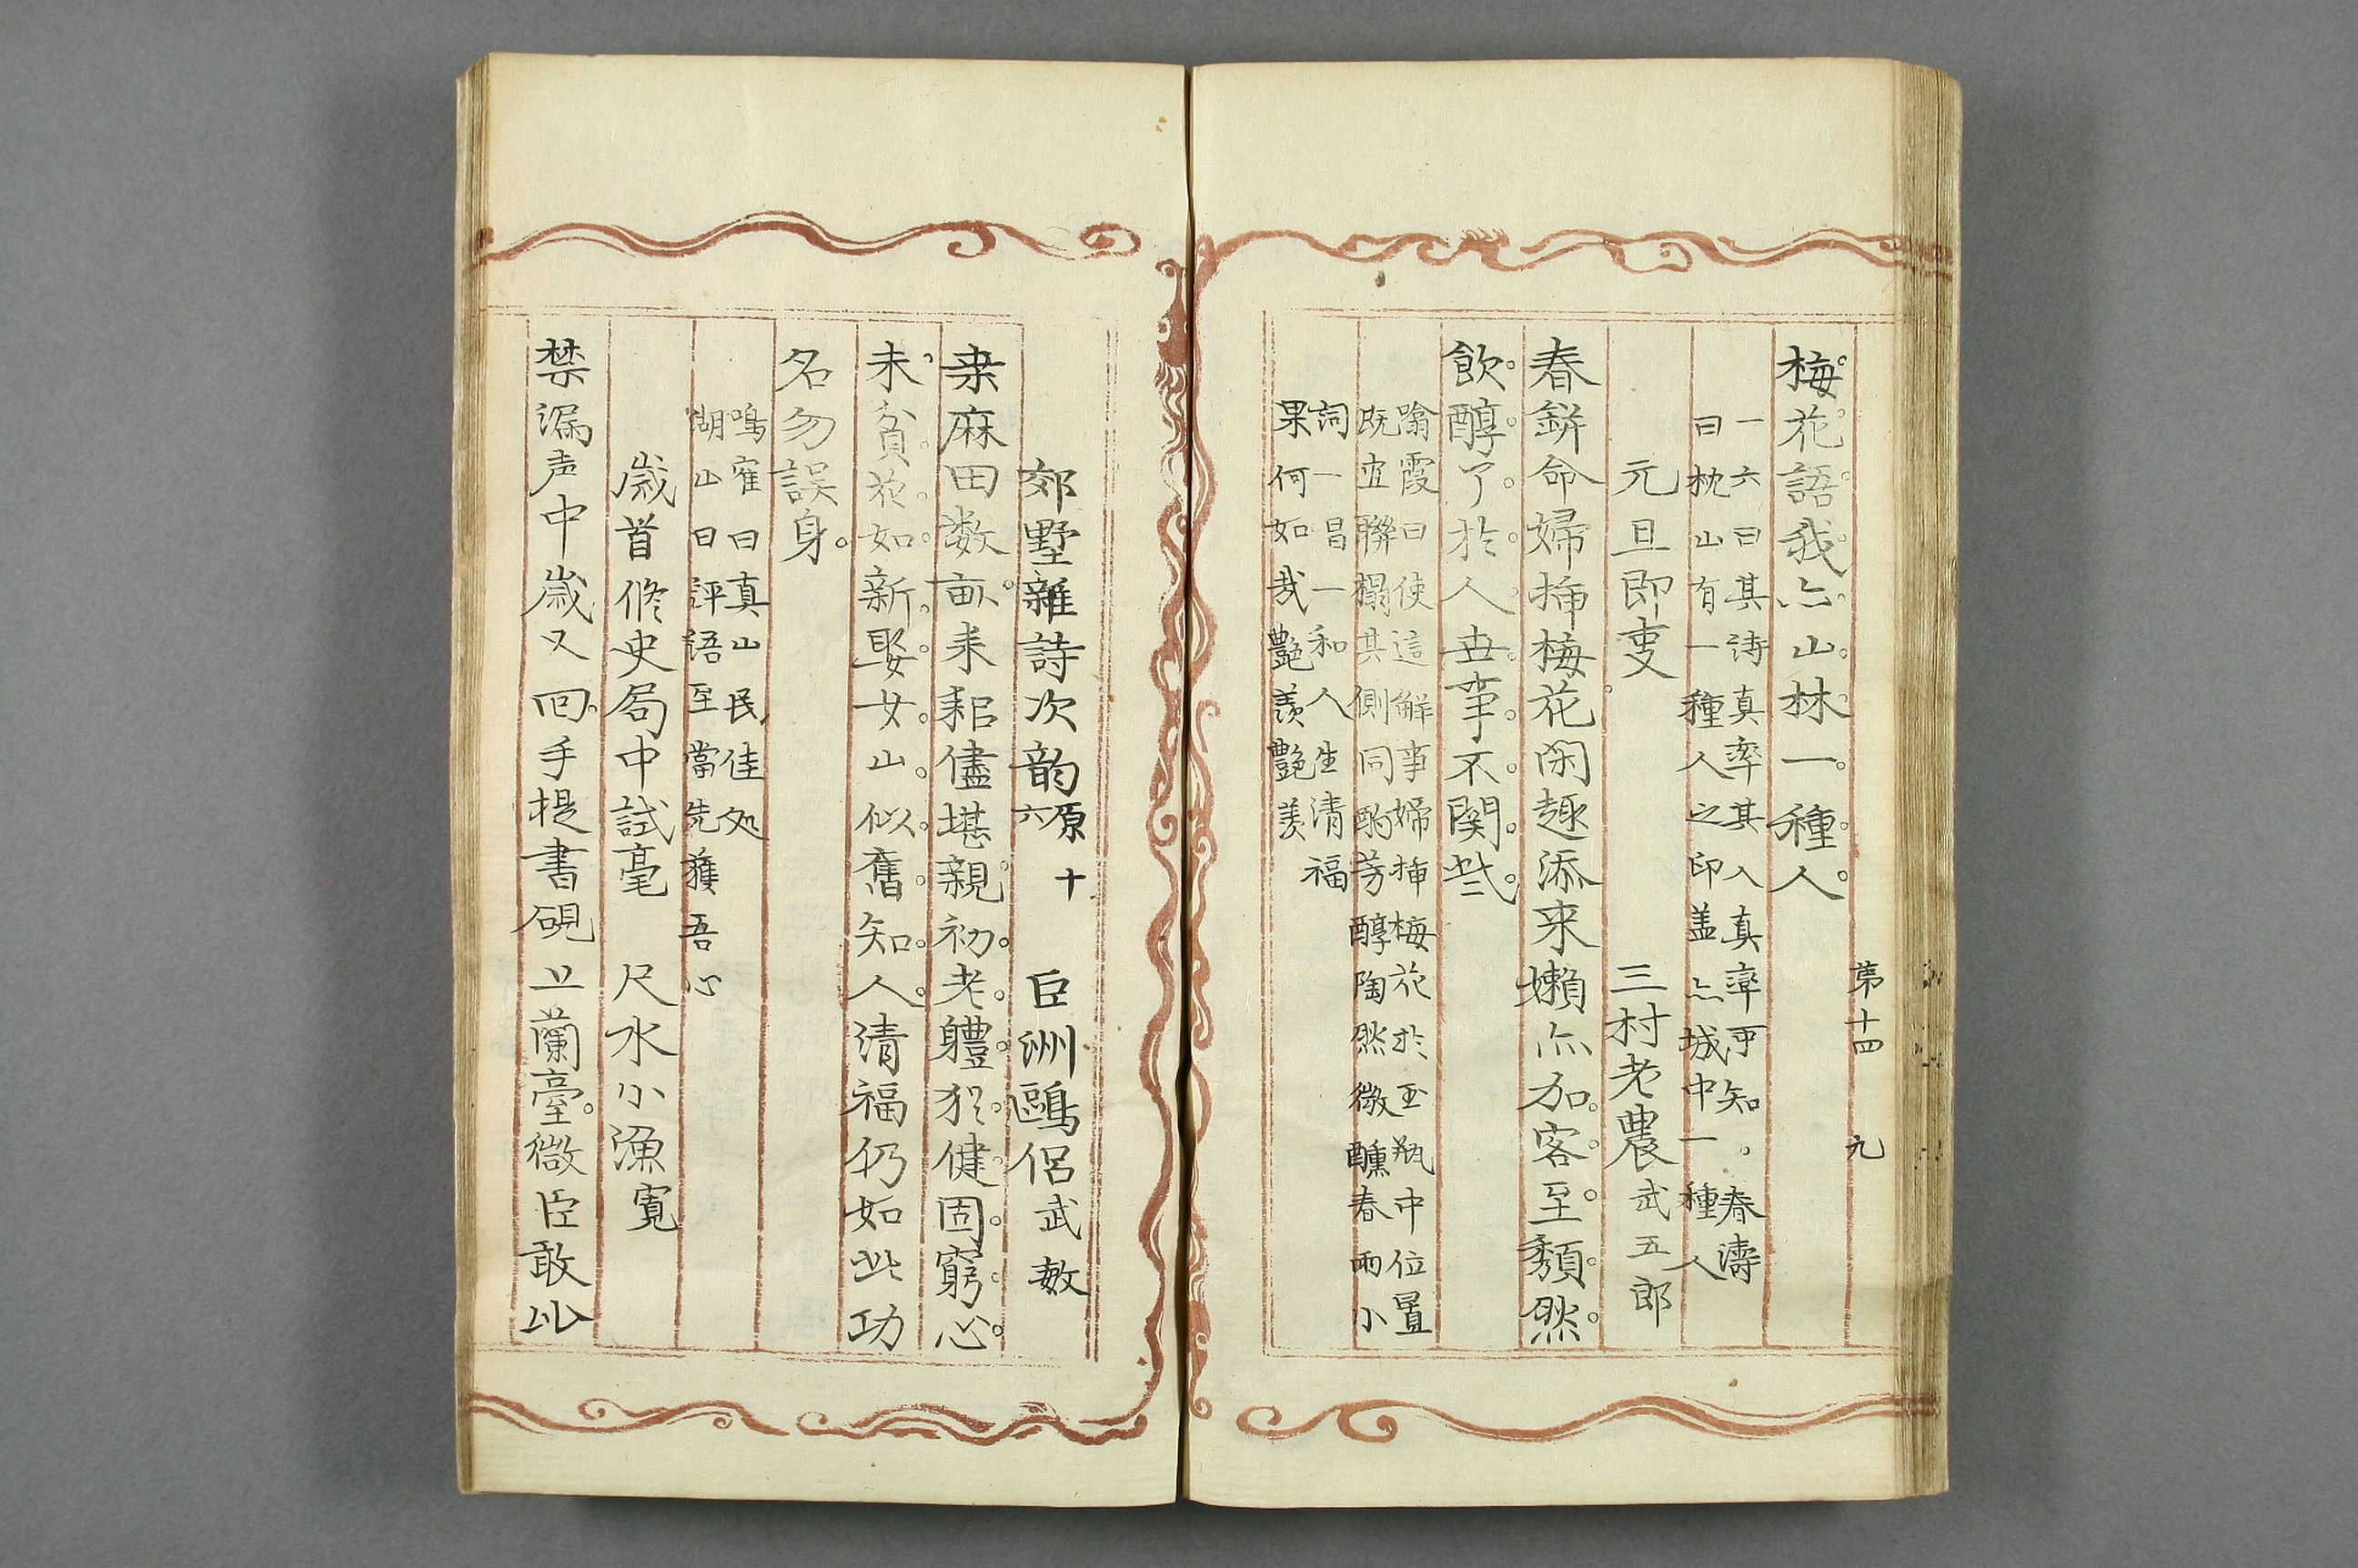 第十四 九
梅花語我亦山林一種人
一六曰其詩真率其入真率可知。春濤
曰枕山有一種人之印蓋亦城中一種人
元旦即事 三村老農 武五郎
春餅命婦挿梅花閑趣添来嬾亦加客至頽然
飲醇了於人世事不関些
喰霞曰使這解事婦挿梅花於玉瓶中位置
既宜聯榻其側同酌芳醇陶然微醺春雨小
詞一昌一和人生清福
果何如哉艶羨艶羨
郊墅雜詩次韵 原十六 巨洲鷗侶 武敏
桒麻田数畝耒耜儘堪親初老軆猶健固窮心
未貧花如新娶女山似舊知人清福仍如此功
名勿誤身
鳴寉曰真山民佳处
湖山曰評語至當先獲吾心
歳首修史局中試毫 尺水小漁寛
禁漏声中歳又回手提書硯上蘭臺微臣敢比